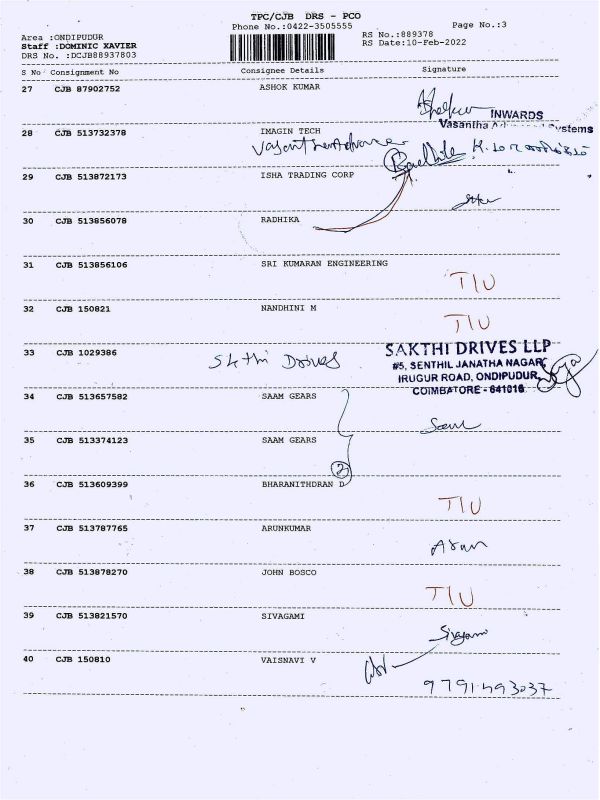 TPC/CJB DRS - PCO
Phone No.:0422-3505555 Page No.:3
Area :ONDIPUDUR RS No.:889378
Staff :DOMINIC XAVIER RS Date:10-Feb-2022
DRS No. :DCJB88937803
S No Consignment No Consignee Details Signature
27 CJB 87902752 ASHOK KUMAR
INWARDS
Vasantha Systems
28 CJB 513732378 IMAGIN TECH
29 CJB 513872173 ISHA TRADING CORP
30 CJB 513856078 RADHIKA
31 CJB 513856106 SRI KUMARAN ENGINEERING
TIU
32 CJB 150821 NANDHINI M
TIU
33 CJB 1029386 Drives SAKTHI DRIVES LLP
#5, SENTHIL JANATHA NAGAR,
IRUGUR ROAD, ONDIPUDUR,
COIMBATORE - 641016.
34 CJB 513657582 SAAM GEARS
35 CJB 513374123 SAAM GEARS
2
36 CJB 513609399 BHARANITHDRAN D
TIU
37 CJB 513787765 ARUNKUMAR
Arun
38 CJB 513878270 JOHN BOSCO
TIU
39 CJB 513821570 SIVAGAMI
Sivagami
40 CJB 150810 VAISNAVI V
9791493037